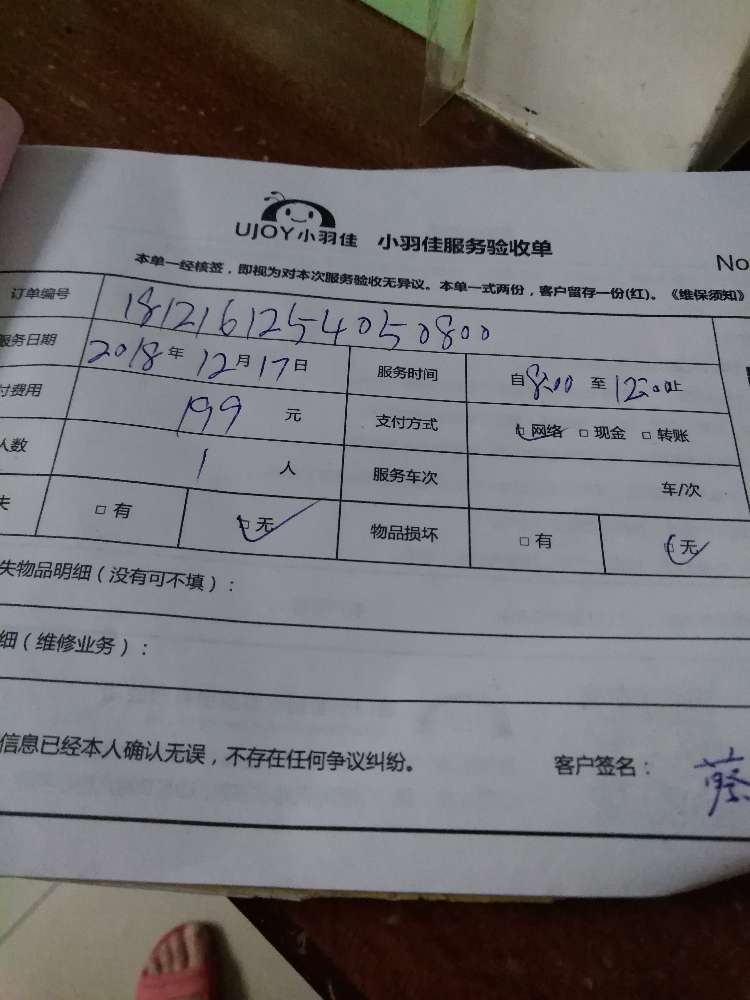 UJOY小羽佳 小羽佳服务验收单
No
本单一经核签，即视为对本次服务验收无异议。本单一式两份，客户留存一份(红)。《维保须知》
订单编号 1812161254050800
服务日期 2018年12月17日 服务时间 自8:00至12:00止
付费用 199元 支付方式 □网络 □现金 □转账
人数 1人 服务车次 车/次
失 □有 □无 物品损坏 □有 □无
失物品明细（没有可不填）：
细（维修业务）：
信息已经本人确认无误，不存在任何争议纠纷。 客户签名：蔡